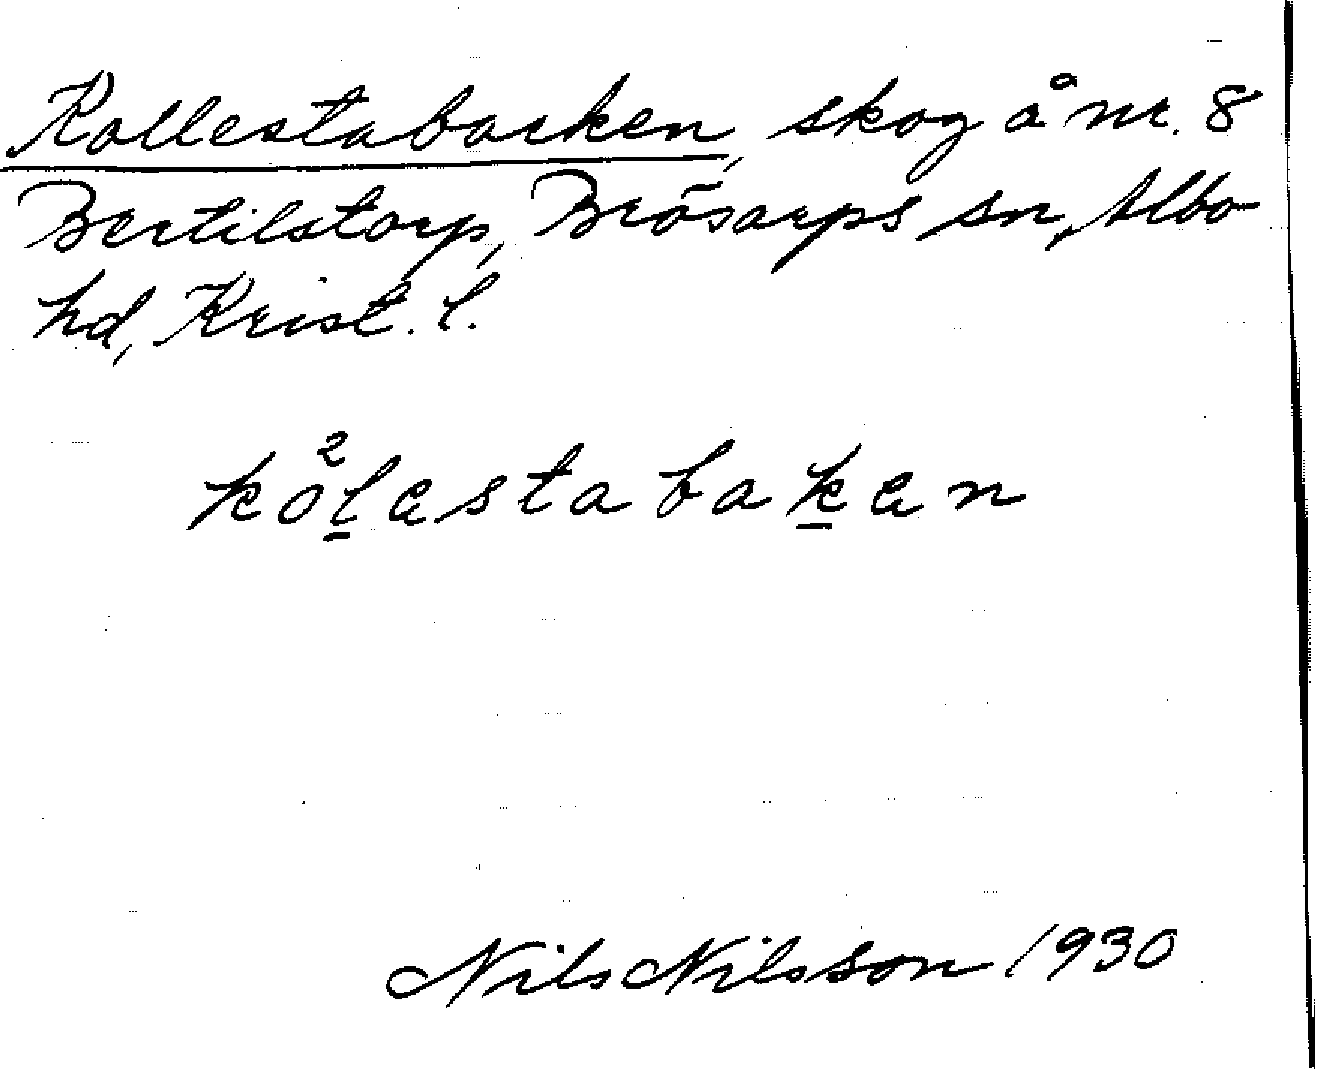 Kollestabacken, skog å nr. 8
Bertilstorp, Brösarps sn, Albo
hd, Krist. l.
ko²lestabaken
Nils Nilsson 1930